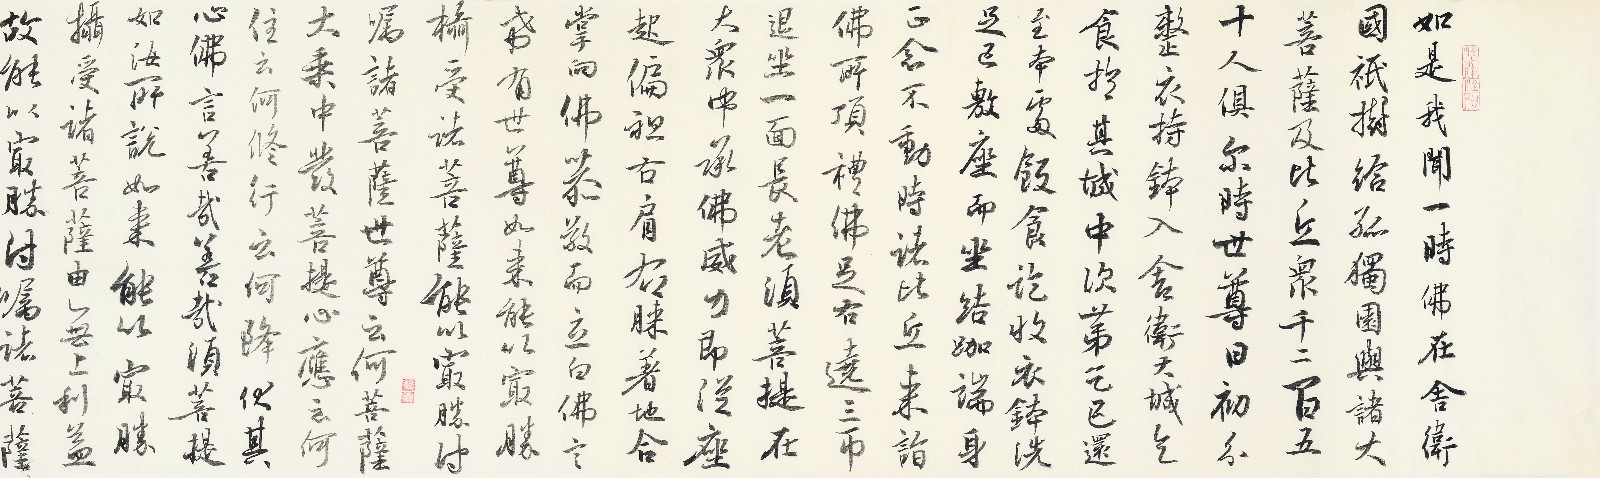 如是我聞一時佛在舍衛
國祇樹給孤獨園與諸大
菩薩及比丘眾千二百五
十人俱尔時世尊日初分
整衣持鉢入舍衛大城乞
食於其城中次第乞已還
至本處飯食訖收衣鉢洗
足已敷座而坐結跏端身
正念不動時諸比丘来詣
佛所頂禮佛足右遶三帀
退坐一面長老須菩提在
大衆中承佛威力即從座
起偏袒右肩右膝着地合
掌向佛恭敬而立白佛言
希有世尊如来能以冣勝
攝受諸菩薩能以冣勝付
嘱諸菩薩世尊云何菩薩
大乗中發菩提心應云何
住云何修行云何降伏其
心佛言善哉善哉須菩提
如汝所說如来能以冣勝
攝受諸菩薩由此無上利益
故能以冣勝付嘱諸菩薩